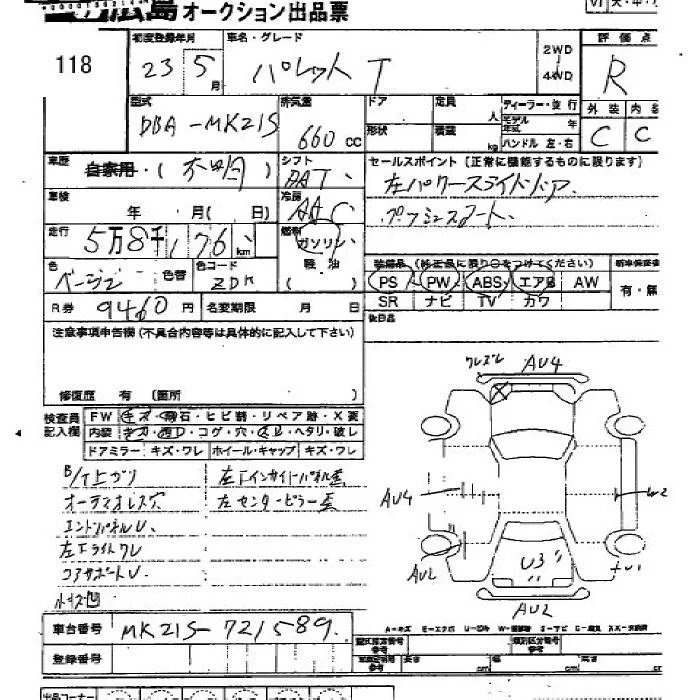 広島 オークション出品票
118
初度登録年月 車名・グレード 評価点
23 5月 パレット T 2WD 4WD R
型式 排気量 ドア 定員 人 ディーラー・並行 外装 内装
DBA-MK21S 660 cc 形状 積載 kg モデル年式 年 C C
ハンドル 左・右
車歴 自家用・(不明) シフト DAT セールスポイント(正常に機能するものに限ります)
車検 年 月(日) 冷房 AAC 左パワースライドドア
プッシュスタート
走行 5万8千176km 燃料 ガソリン 軽油 ( )
装備品(純正品に限り○をつけてください)
色 ベージュ 色替 色コード ZDH PS PW ABS エアB AW 有・無
SR ナビ TV カワ
R券 9460円 名変期限 月 日 後日品
注意事項申告欄(不具合内容等は具体的に記入して下さい)
修復歴 有 (箇所 )
検査員記入欄 FW キズ・飛石・ヒビ割・リペア跡・X要
内装 キズ・コゲ・穴・ヘタリ・破レ
ドアミラー キズ・ワレ ホイール・キャップ キズ・ワレ
B/T上ガリ 左Fインサイドパネル歪
オーディオレス穴 左センターピラー歪
エンドパネルU
左Fライトワレ
コアサポートU
ルーフ凹
ワレズレ AU4
AU4
W2
AU2
U3
AU2
車台番号 MK21S-721589
A-キズ E-エクボ U-凹ミ
登録番号 型式指定番号 類別区分番号
長さ cm 幅 cm 高さ cm
出品コーナー